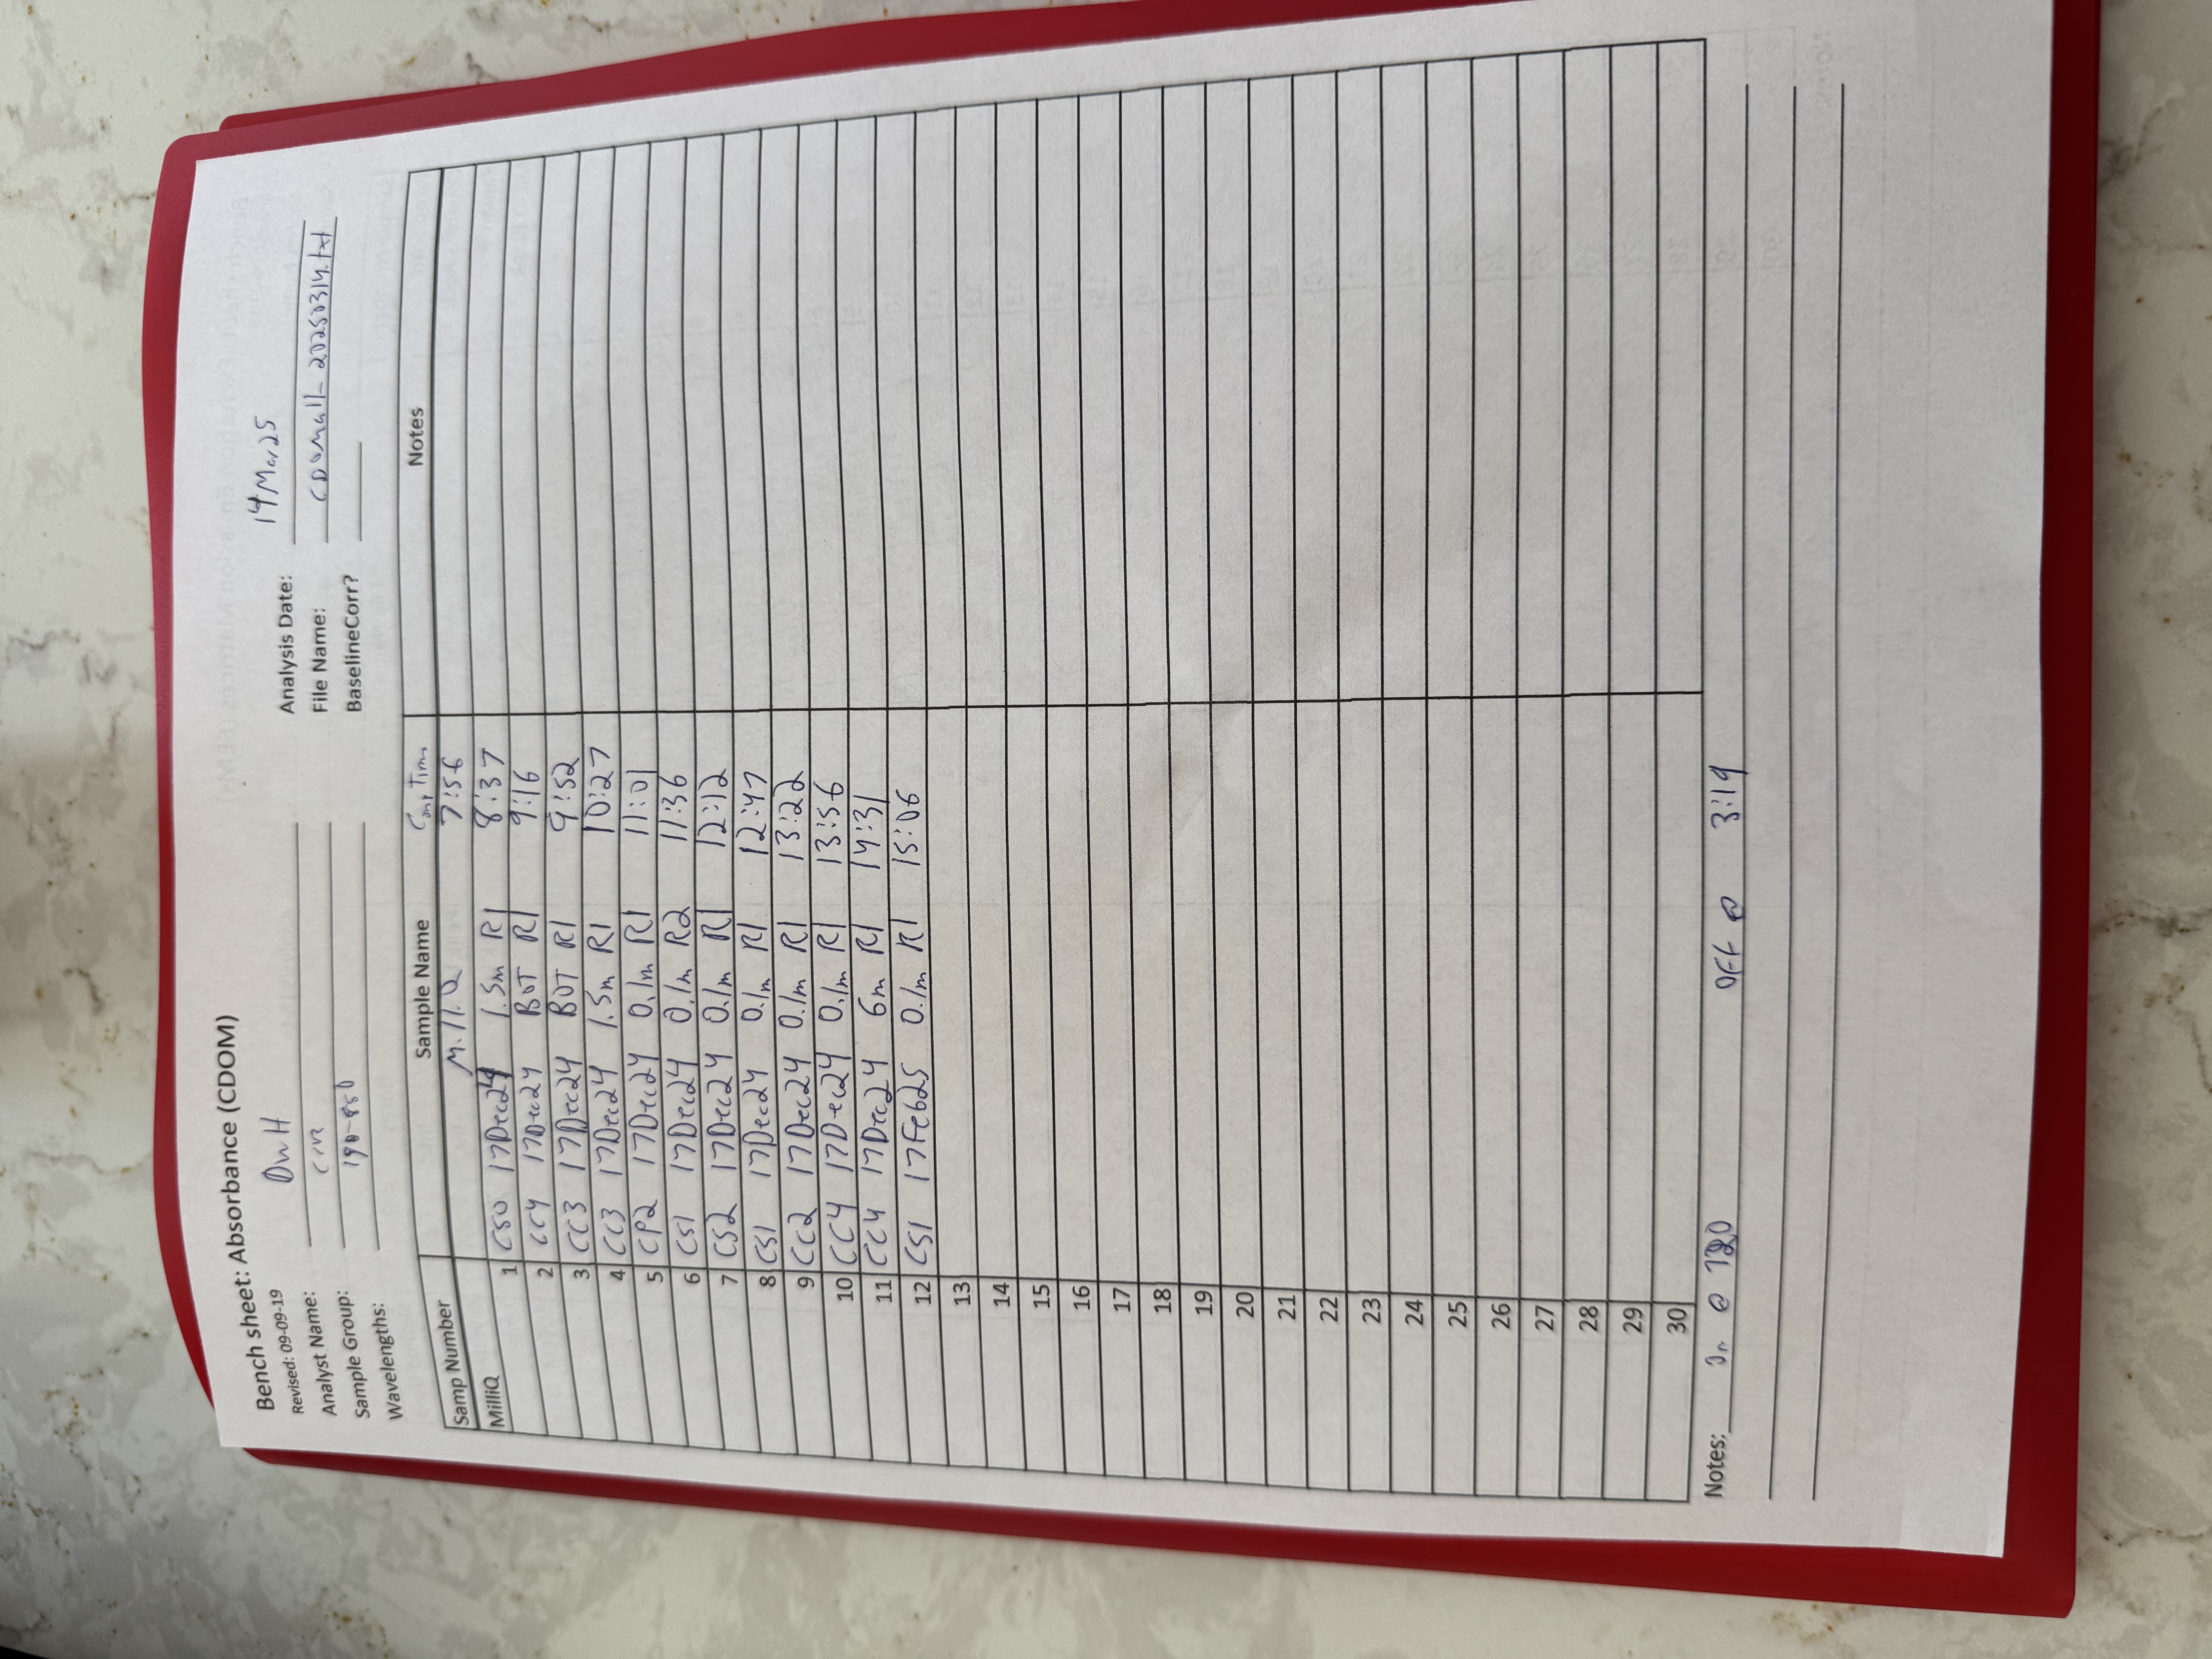 Bench sheet: Absorbance (CDOM)
Revised: 09-09-19
Analyst Name: DWH
Sample Group:
Wavelengths: 190-850
Analysis Date: 14Mar25
File Name: CDOMall_20250314.txt
BaselineCorr?
Samp Number Sample Name Comp Time Notes
MilliQ MilliQ 7:56
1 CS0 17Dec24 1.5m R1 8:37
2 CC4 17Dec24 BOT R1 9:16
3 CC3 17Dec24 BOT R1 9:52
4 CC3 17Dec24 1.5m R1 10:27
5 CP2 17Dec24 0.1m R1 11:01
6 CS1 17Dec24 0.1m R2 11:36
7 CS2 17Dec24 0.1m R1 12:12
8 CS1 17Dec24 0.1m R1 12:47
9 CC2 17Dec24 0.1m R1 13:22
10 CC4 17Dec24 0.1m R1 13:56
11 CC4 17Dec24 6m R1 14:31
12 CS1 17Feb25 0.1m R1 15:06
13
14
15
16
17
18
19
20
21
22
23
24
25
26
27
28
29
30
Notes: On @ 720 OFF @ 3:19